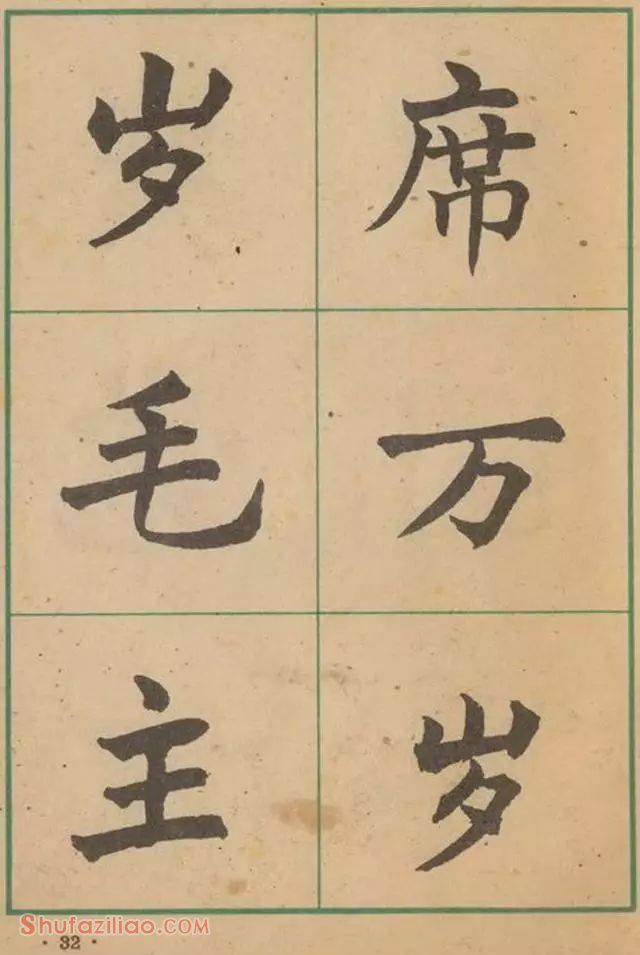 席万岁
岁毛主
Shufaziliao.com
· 32 ·